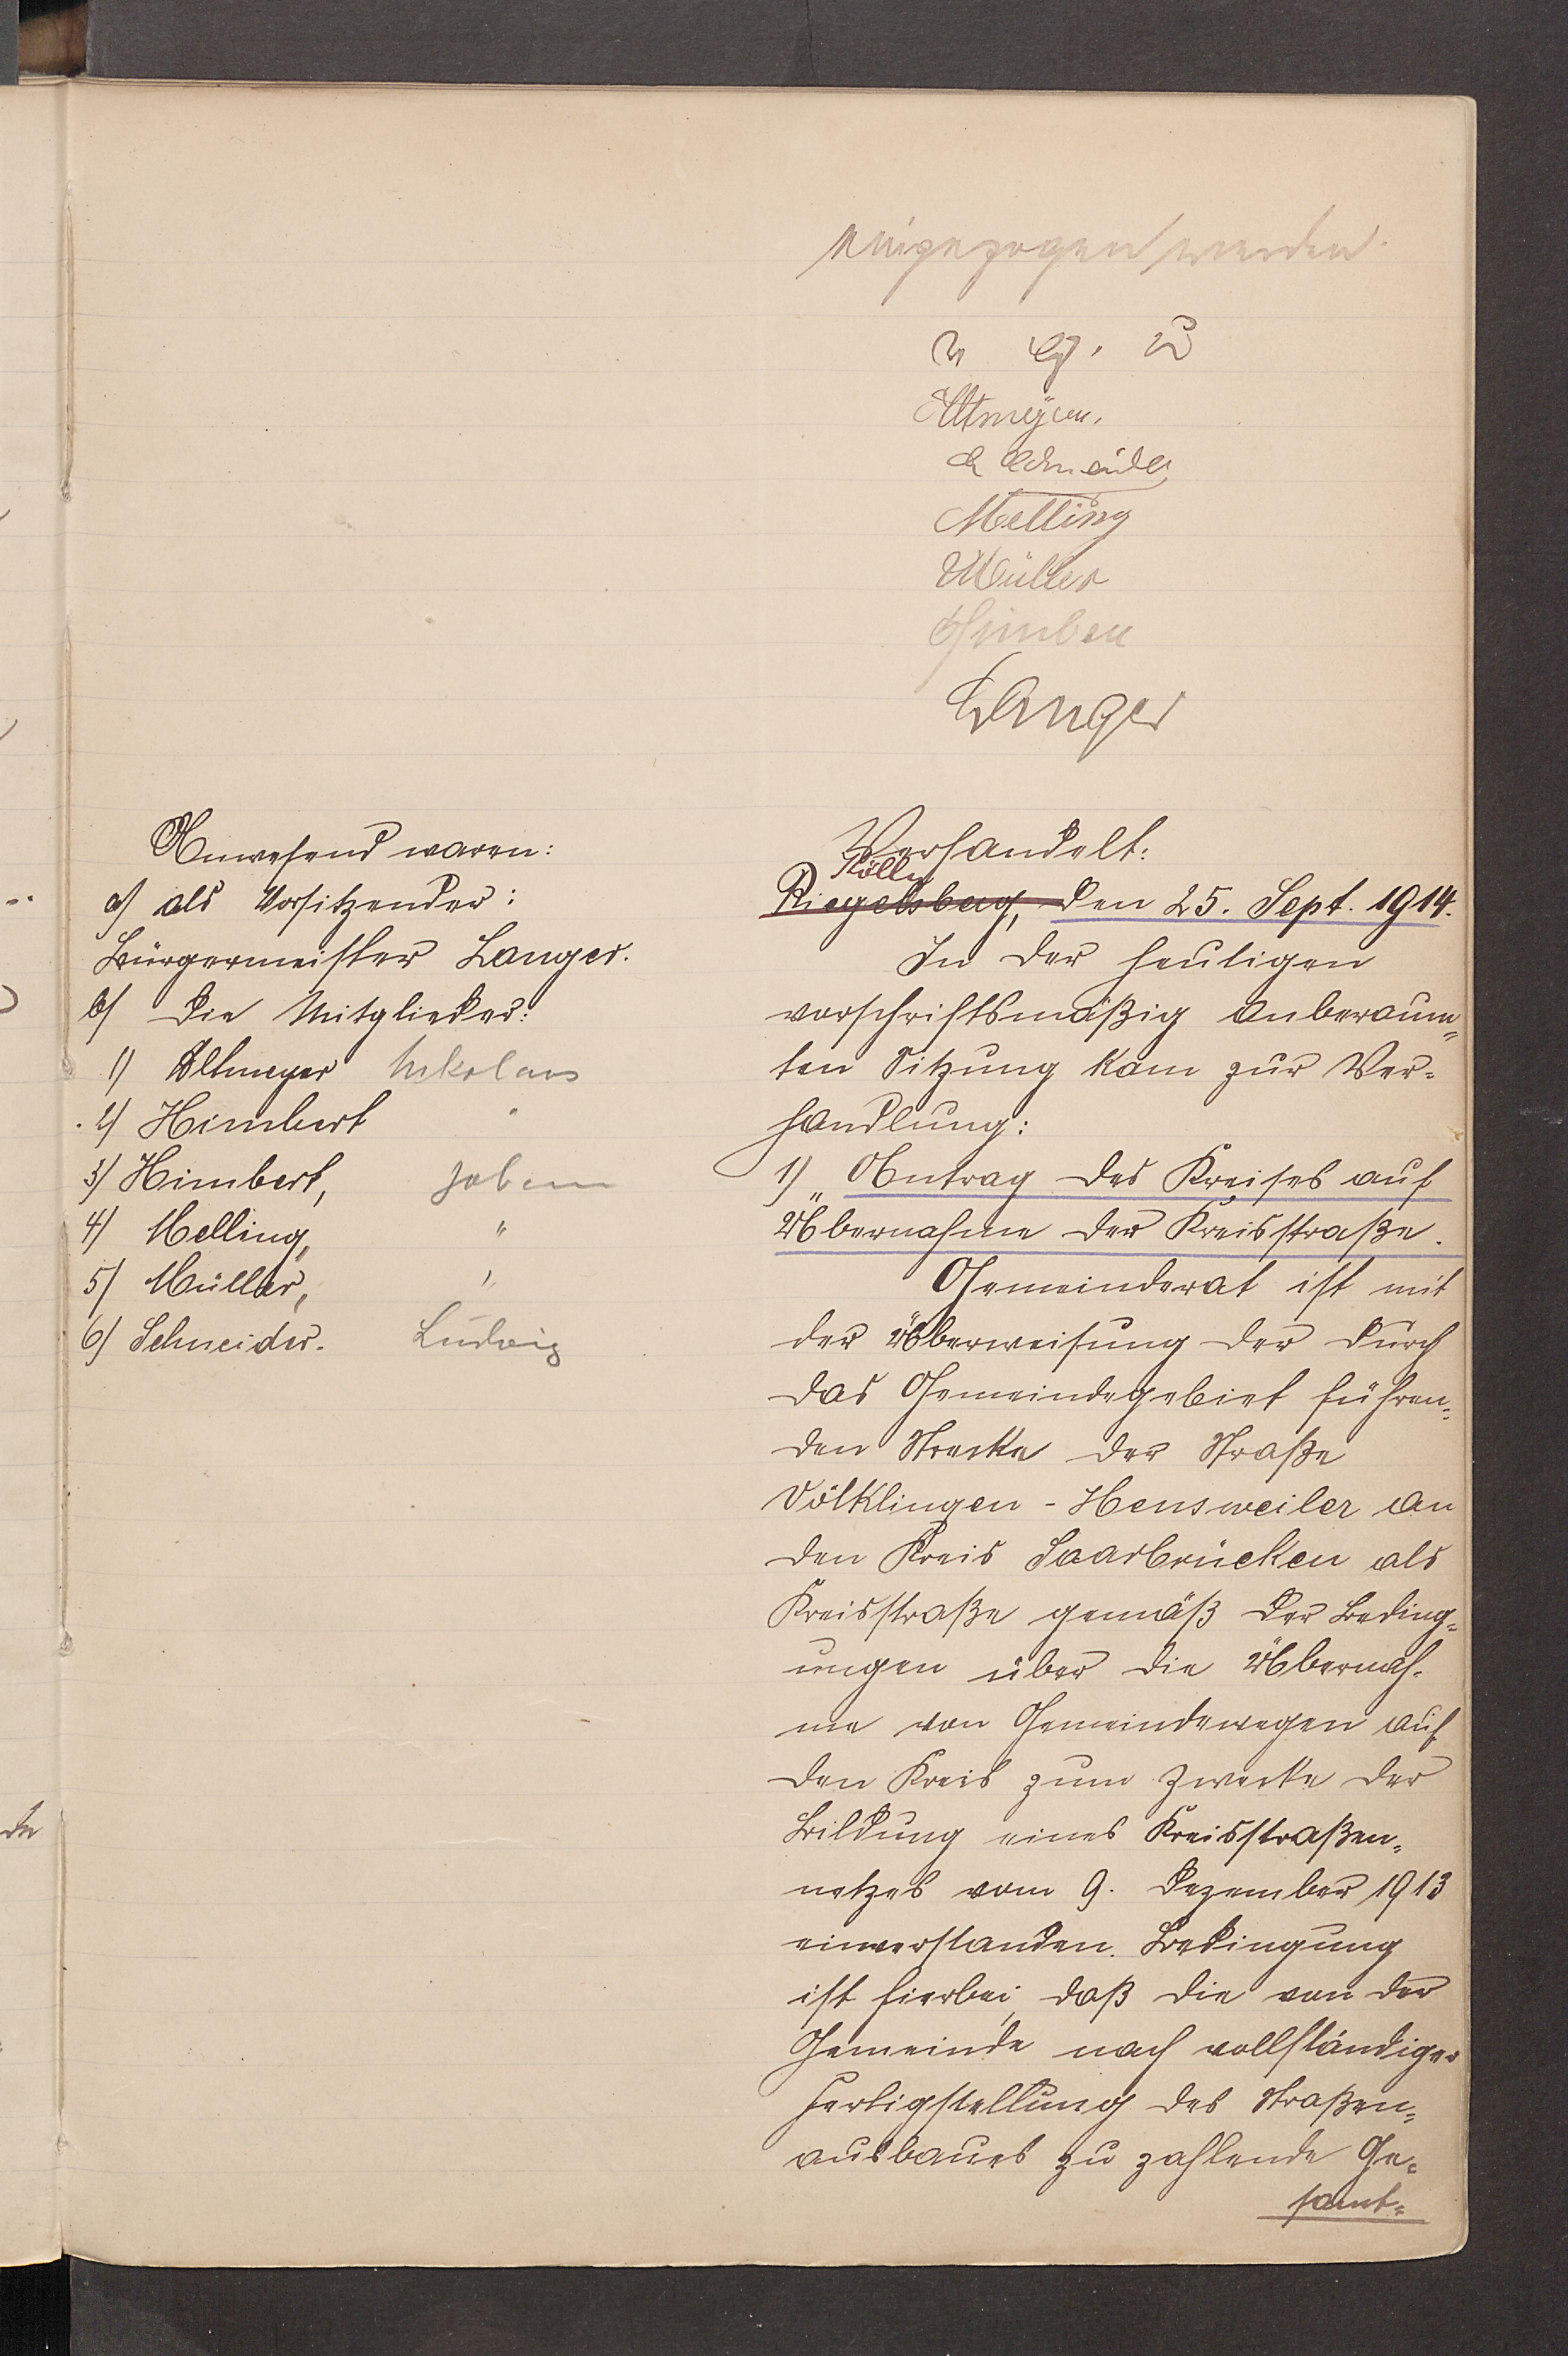 eingezogen werden.
v. g. u.
Altmeyer.
L Schneider
Melling
Müller
Himbert
Langer
Anwesend waren:
a) als Vorsitzender:
Bürgermeister Langer.
b) die Mitglieder:
1) Altmeyer Nikolaus
2) Himbert "
3) Himbert, Johann
4) Melling, "
5) Müller, "
6) Schneider. Ludwig
Verhandelt:
Kölln
Riegelsberg, den 25. Sept. 1914.
In der heutigen
vorschriftsmäßig anberaum=
ten Sitzung kam zur Ver=
handlung:
1) Antrag des Kreises auf
Übernahme der Kreisstraße.
Gemeinderat ist mit
der Überweisung der durch
das Gemeindegebiet führen=
den Strecke der Straße
Völklingen - Heusweiler an
den Kreis Saarbrücken als
Kreisstraße gemäß der Beding=
ungen über die Übernah=
me von Gemeindewegen auf
den Kreis zum Zwecke der
Bildung eines Kreisstraßen=
netzes vom 9. Dezember 1913
einverstanden. Bedingung
ist hierbei, daß die von der
Gemeinde nach vollständiger
Fertigstellung des Straßen=
ausbaues zu zahlende Ge=
samt=